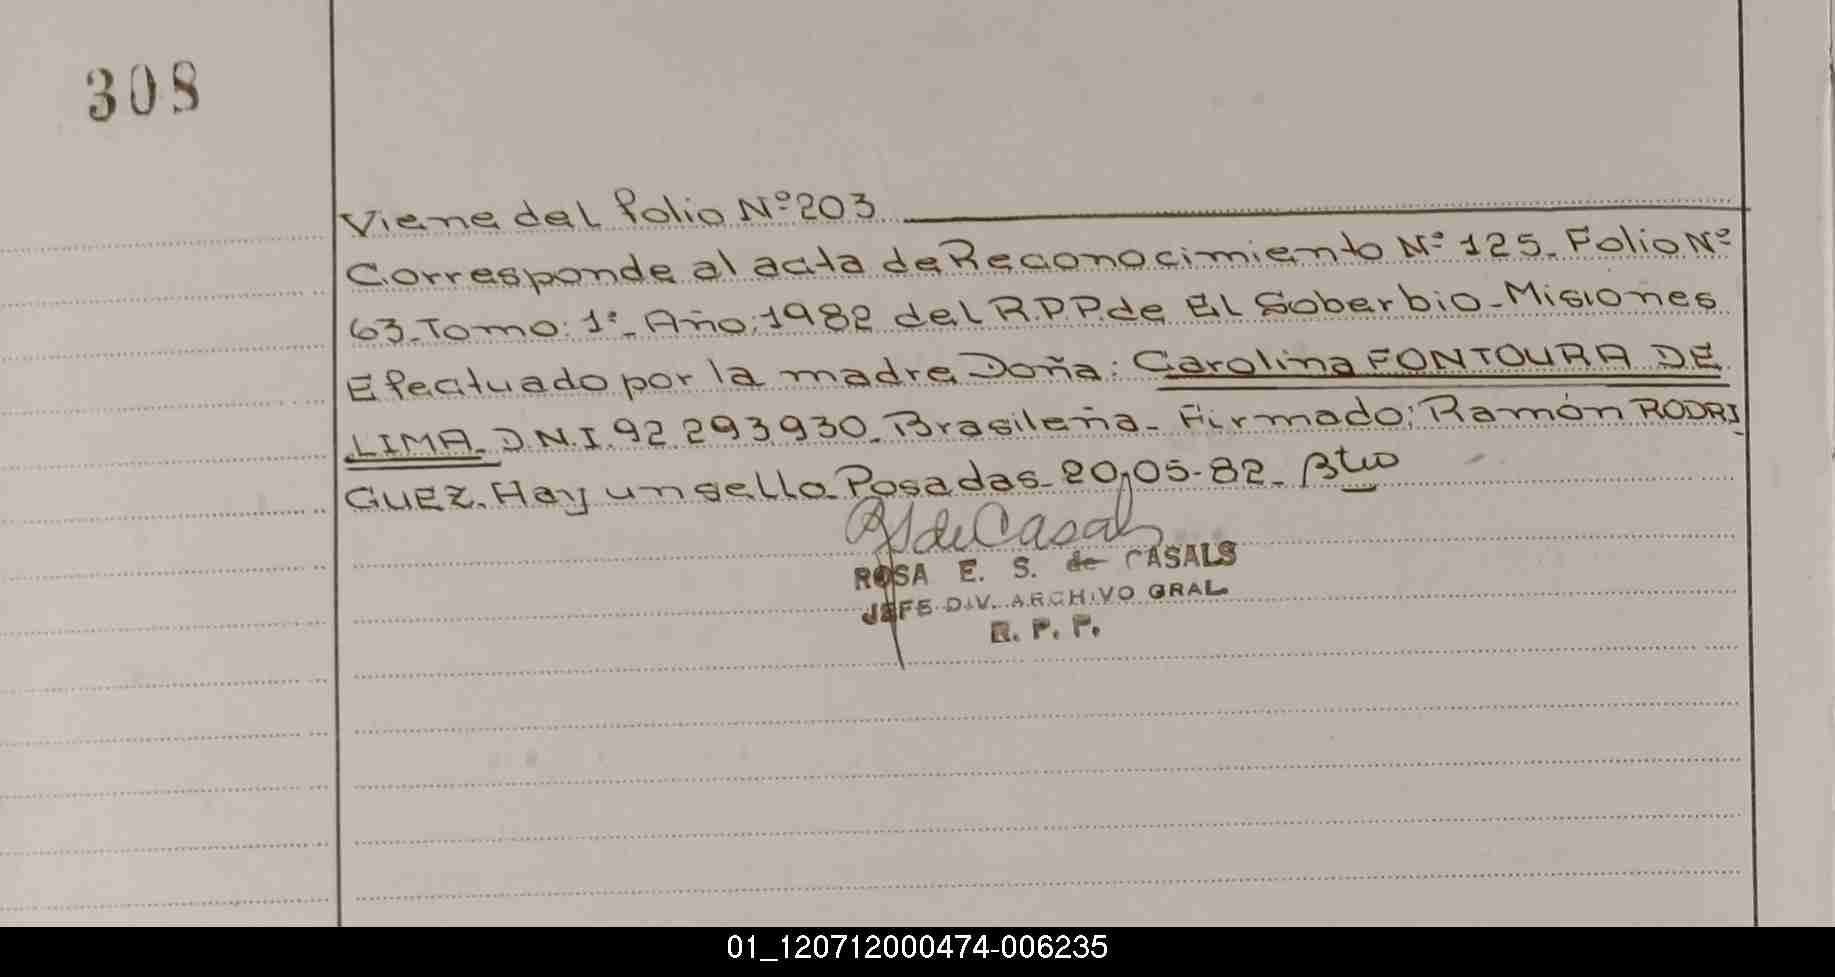 308
Viene del folio Nº 203
Corresponde al acta de Reconocimiento Nº 125. Folio Nº
63. Tomo: 1º. Año: 1982 del R.P.P. de El Soberbio - Misiones
Efectuado por la madre Doña: Carolina FONTOURA DE
LIMA. D.N.I. 92.293.930. Brasileña - Firmado: Ramón RODRI
GUEZ. Hay un sello. Posadas. 20,05-82.
RS de Casals
ROSA E. S. de CASALS
JEFE DIV. ARCHIVO GRAL
R. P. P.
01_120712000474-006235